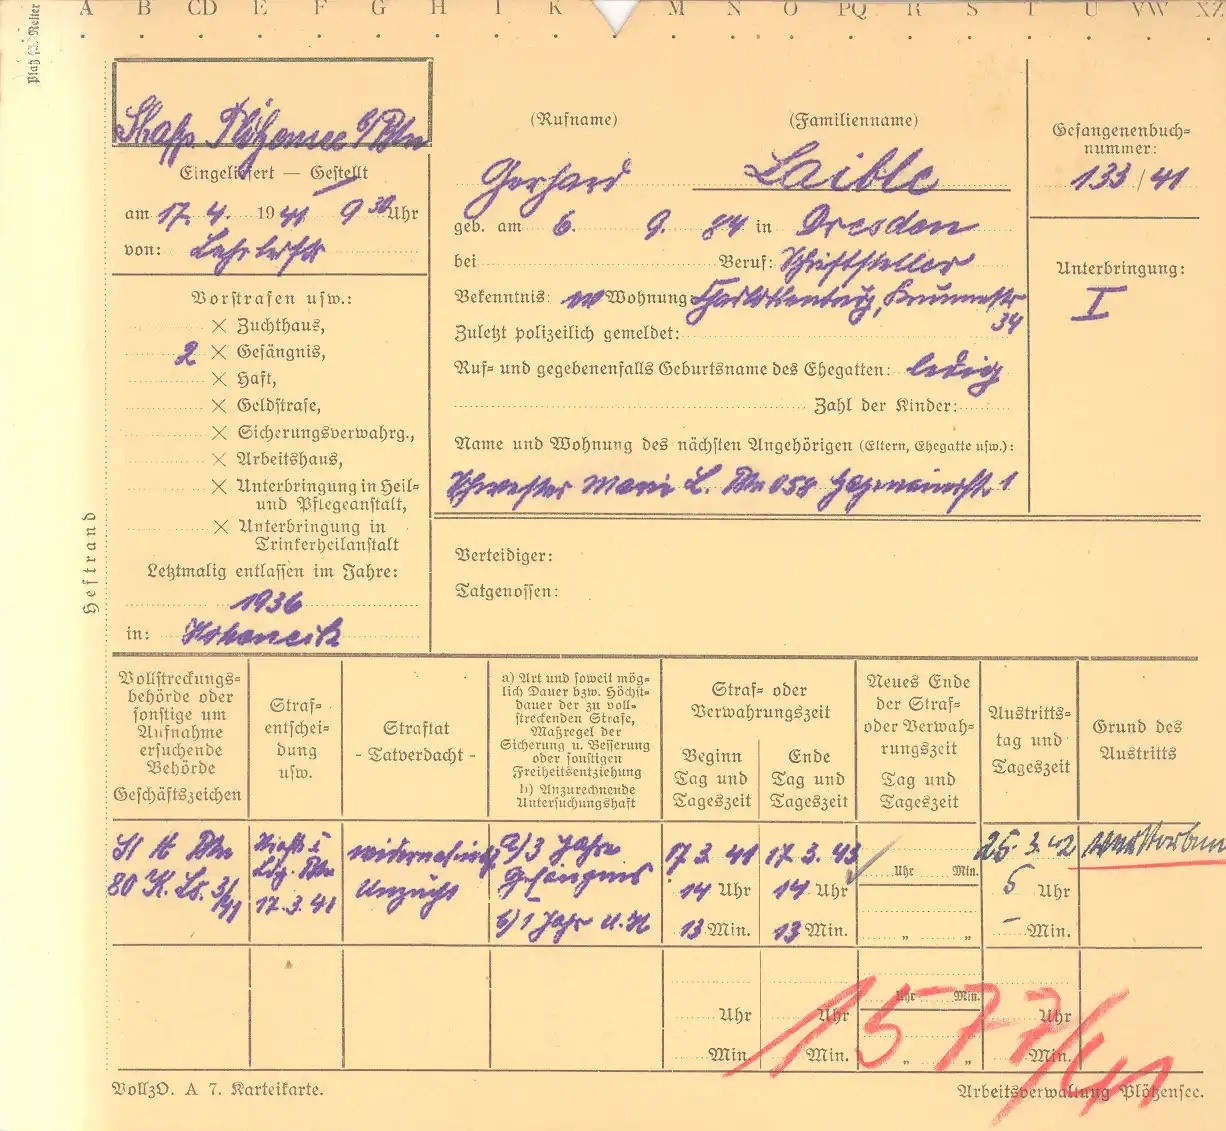 A B CD E F G H I K M N O PQ R S T U VW XZ
Platz für Reiter
Strafgef. Plötzensee b/Bln
Eingeliefert — Gestellt
am 17. 4. 1941 9 30 Uhr
von: Lehrterstr
Vorstrafen usw.:
× Zuchthaus,
2 × Gefängnis,
× Haft,
× Geldstrafe,
× Sicherungsverwahrg.,
× Arbeitshaus,
× Unterbringung in Heil=
und Pflegeanstalt,
× Unterbringung in
Trinkerheilanstalt
Letztmalig entlassen im Jahre:
1936
in:
Heftrand
(Rufname) (Familienname)
Gerhard Laible
geb. am 6. 9. 84 in Dresden
bei Beruf: Schriftsteller
Bekenntnis: Wohnung Charlottenburg, Krummestr
34
Zuletzt polizeilich gemeldet:
Ruf= und gegebenenfalls Geburtsname des Ehegatten: ledig
Zahl der Kinder:
Name und Wohnung des nächsten Angehörigen (Eltern, Ehegatte usw.):
Schwester Marie L. Bln 058 1
Gefangenenbuch=
nummer:
133/41
Unterbringung:
I
Verteidiger:
Tatgenossen:
Vollstreckungs=
behörde oder
sonstige um
Aufnahme
ersuchende
Behörde
Geschäftszeichen
Straf=
entschei=
dung
usw.
Straftat
- Tatverdacht -
a) Art und soweit mög=
lich Dauer bzw. Höchst=
dauer der zu voll=
streckenden Strafe,
Maßregel der
Sicherung u. Besserung
oder sonstigen
Freiheitsentziehung
b) Anzurechnende
Untersuchungshaft
Straf= oder
Verwahrungszeit
Beginn
Tag und
Tageszeit
Ende
Tag und
Tageszeit
Neues Ende
der Straf=
oder Verwah=
rungszeit
Tag und
Tageszeit
Austritts=
tag und
Tageszeit
Grund des
Austritts
St A Bln
80 K. Ls. 3/41
Ldg. Bln
17.3.41
widernatürl
Unzucht
a) 3 Jahre
Gefängnis
b) 1 Jahr U.H
17 3. 41
14 Uhr
13 Min.
17. 3. 43
14 Uhr
13 Min.
Uhr Min.
„ „
25. 3. 42
5 Uhr
– Min.
verstorben
Uhr
Min.
Uhr
Min.
Uhr Min.
„ „
Uhr
Min.
1577/41
VollzO. A 7. Karteikarte.
Arbeitsverwaltung Plötzensee.